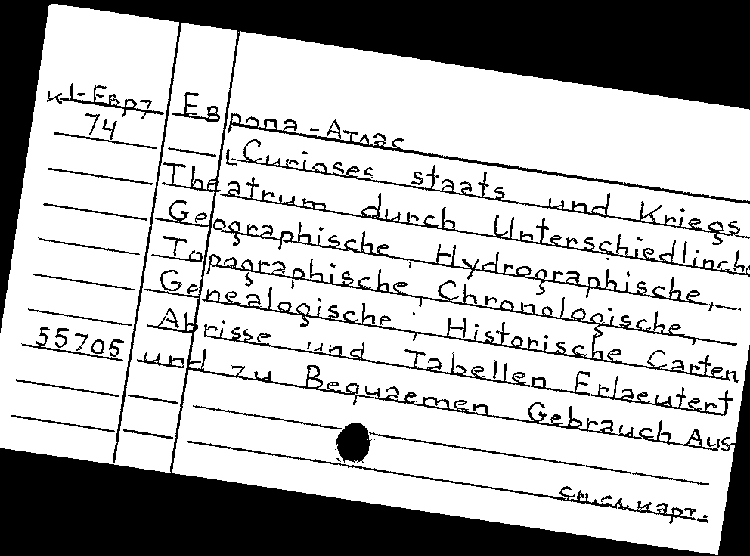 к1-Евр7 Европа-Атлас
74 Curioses staats und Kriegs
Theatrum durch Unterschiedlinche
Geographische, Hydrographische,
Topagraphische, Chronologische,
Genealogische, Historische Carten
Abrisse und Tabellen Erlaeutert
55705 und zu Bequaemen Gebrauch Aus-
см.сл.карт.